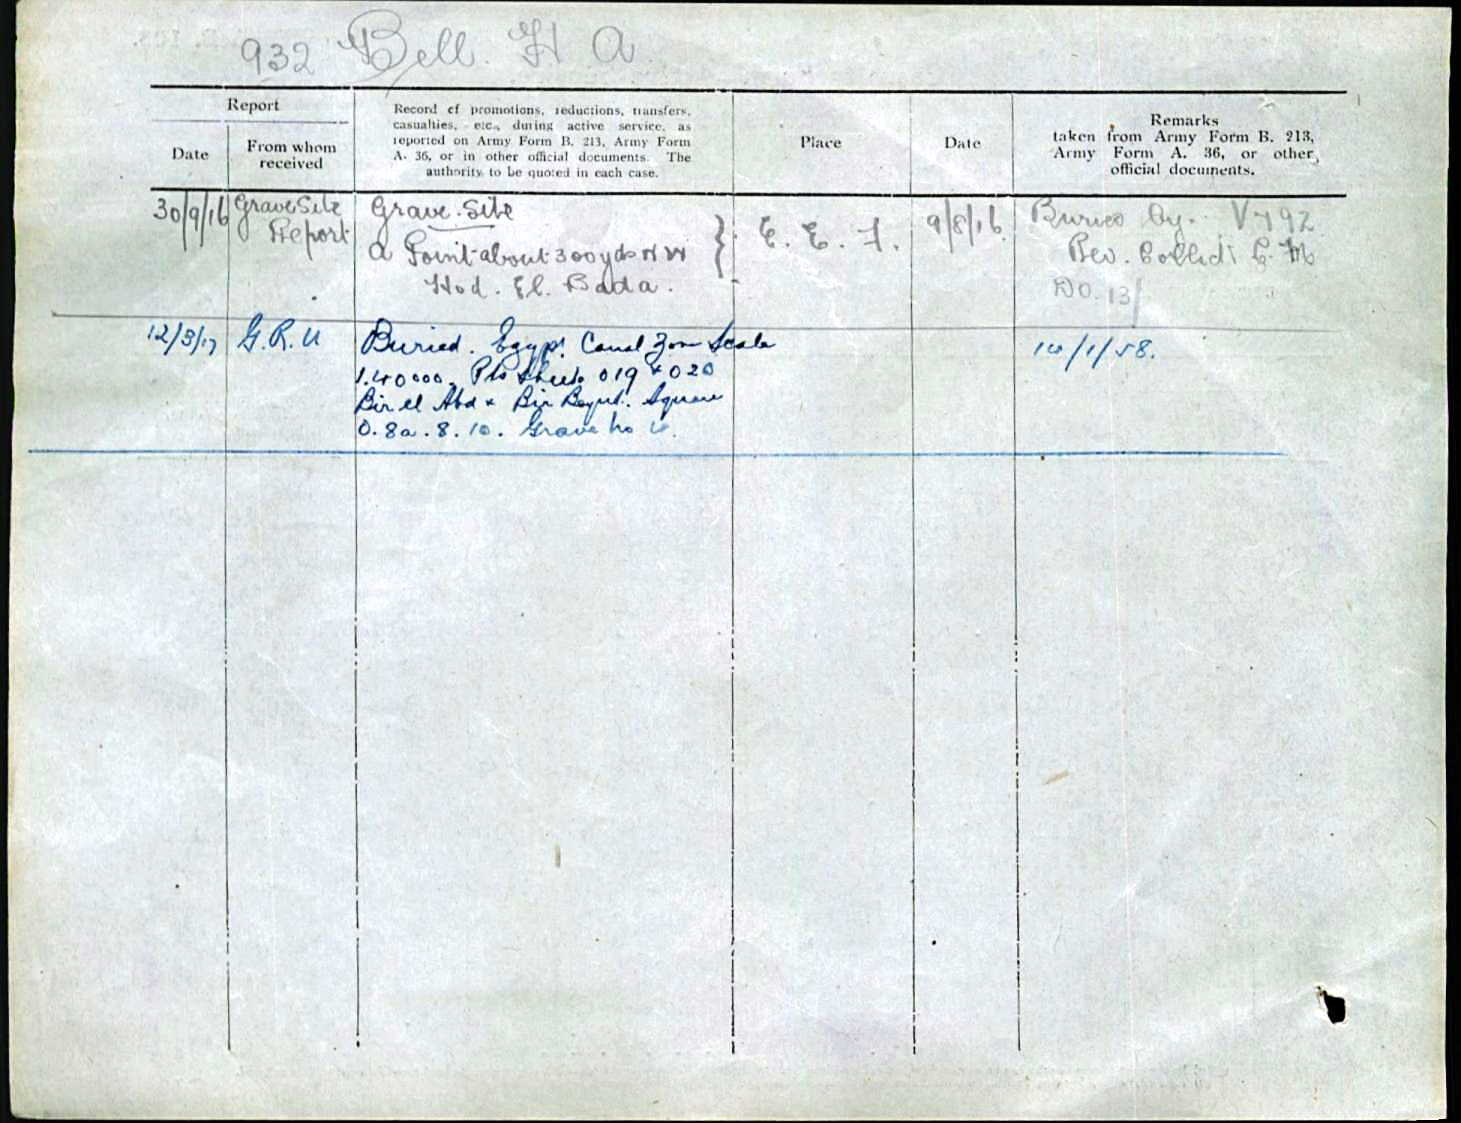 932 Bell. H A
Report
Date
From whom
received
Record of promotions, reductions, transfers,
casualties, etc., during active service, as
reported on Army Form B. 213, Army Form
A. 36, or in other official documents. The
authority to be quoted in each case.
Place
Date
Remarks
taken from Army Form B. 213,
Army Form A. 36, or other
official documents.
30/9/16
Grave Site
Report
Grave Site
a Point about 300 yds N W
Hod. El. Bada.
E. E. F.
9/8/16
Buried by.
Rev.
DO. 13/
12/3/17
G. R. U
Buried. Egypt. Canal Zone Scale
1.40000. Sheets 019 & 020
Bir el Abd & Bir Bayud. Square
O. 8a. 8. 10. Grave No
/1/58.